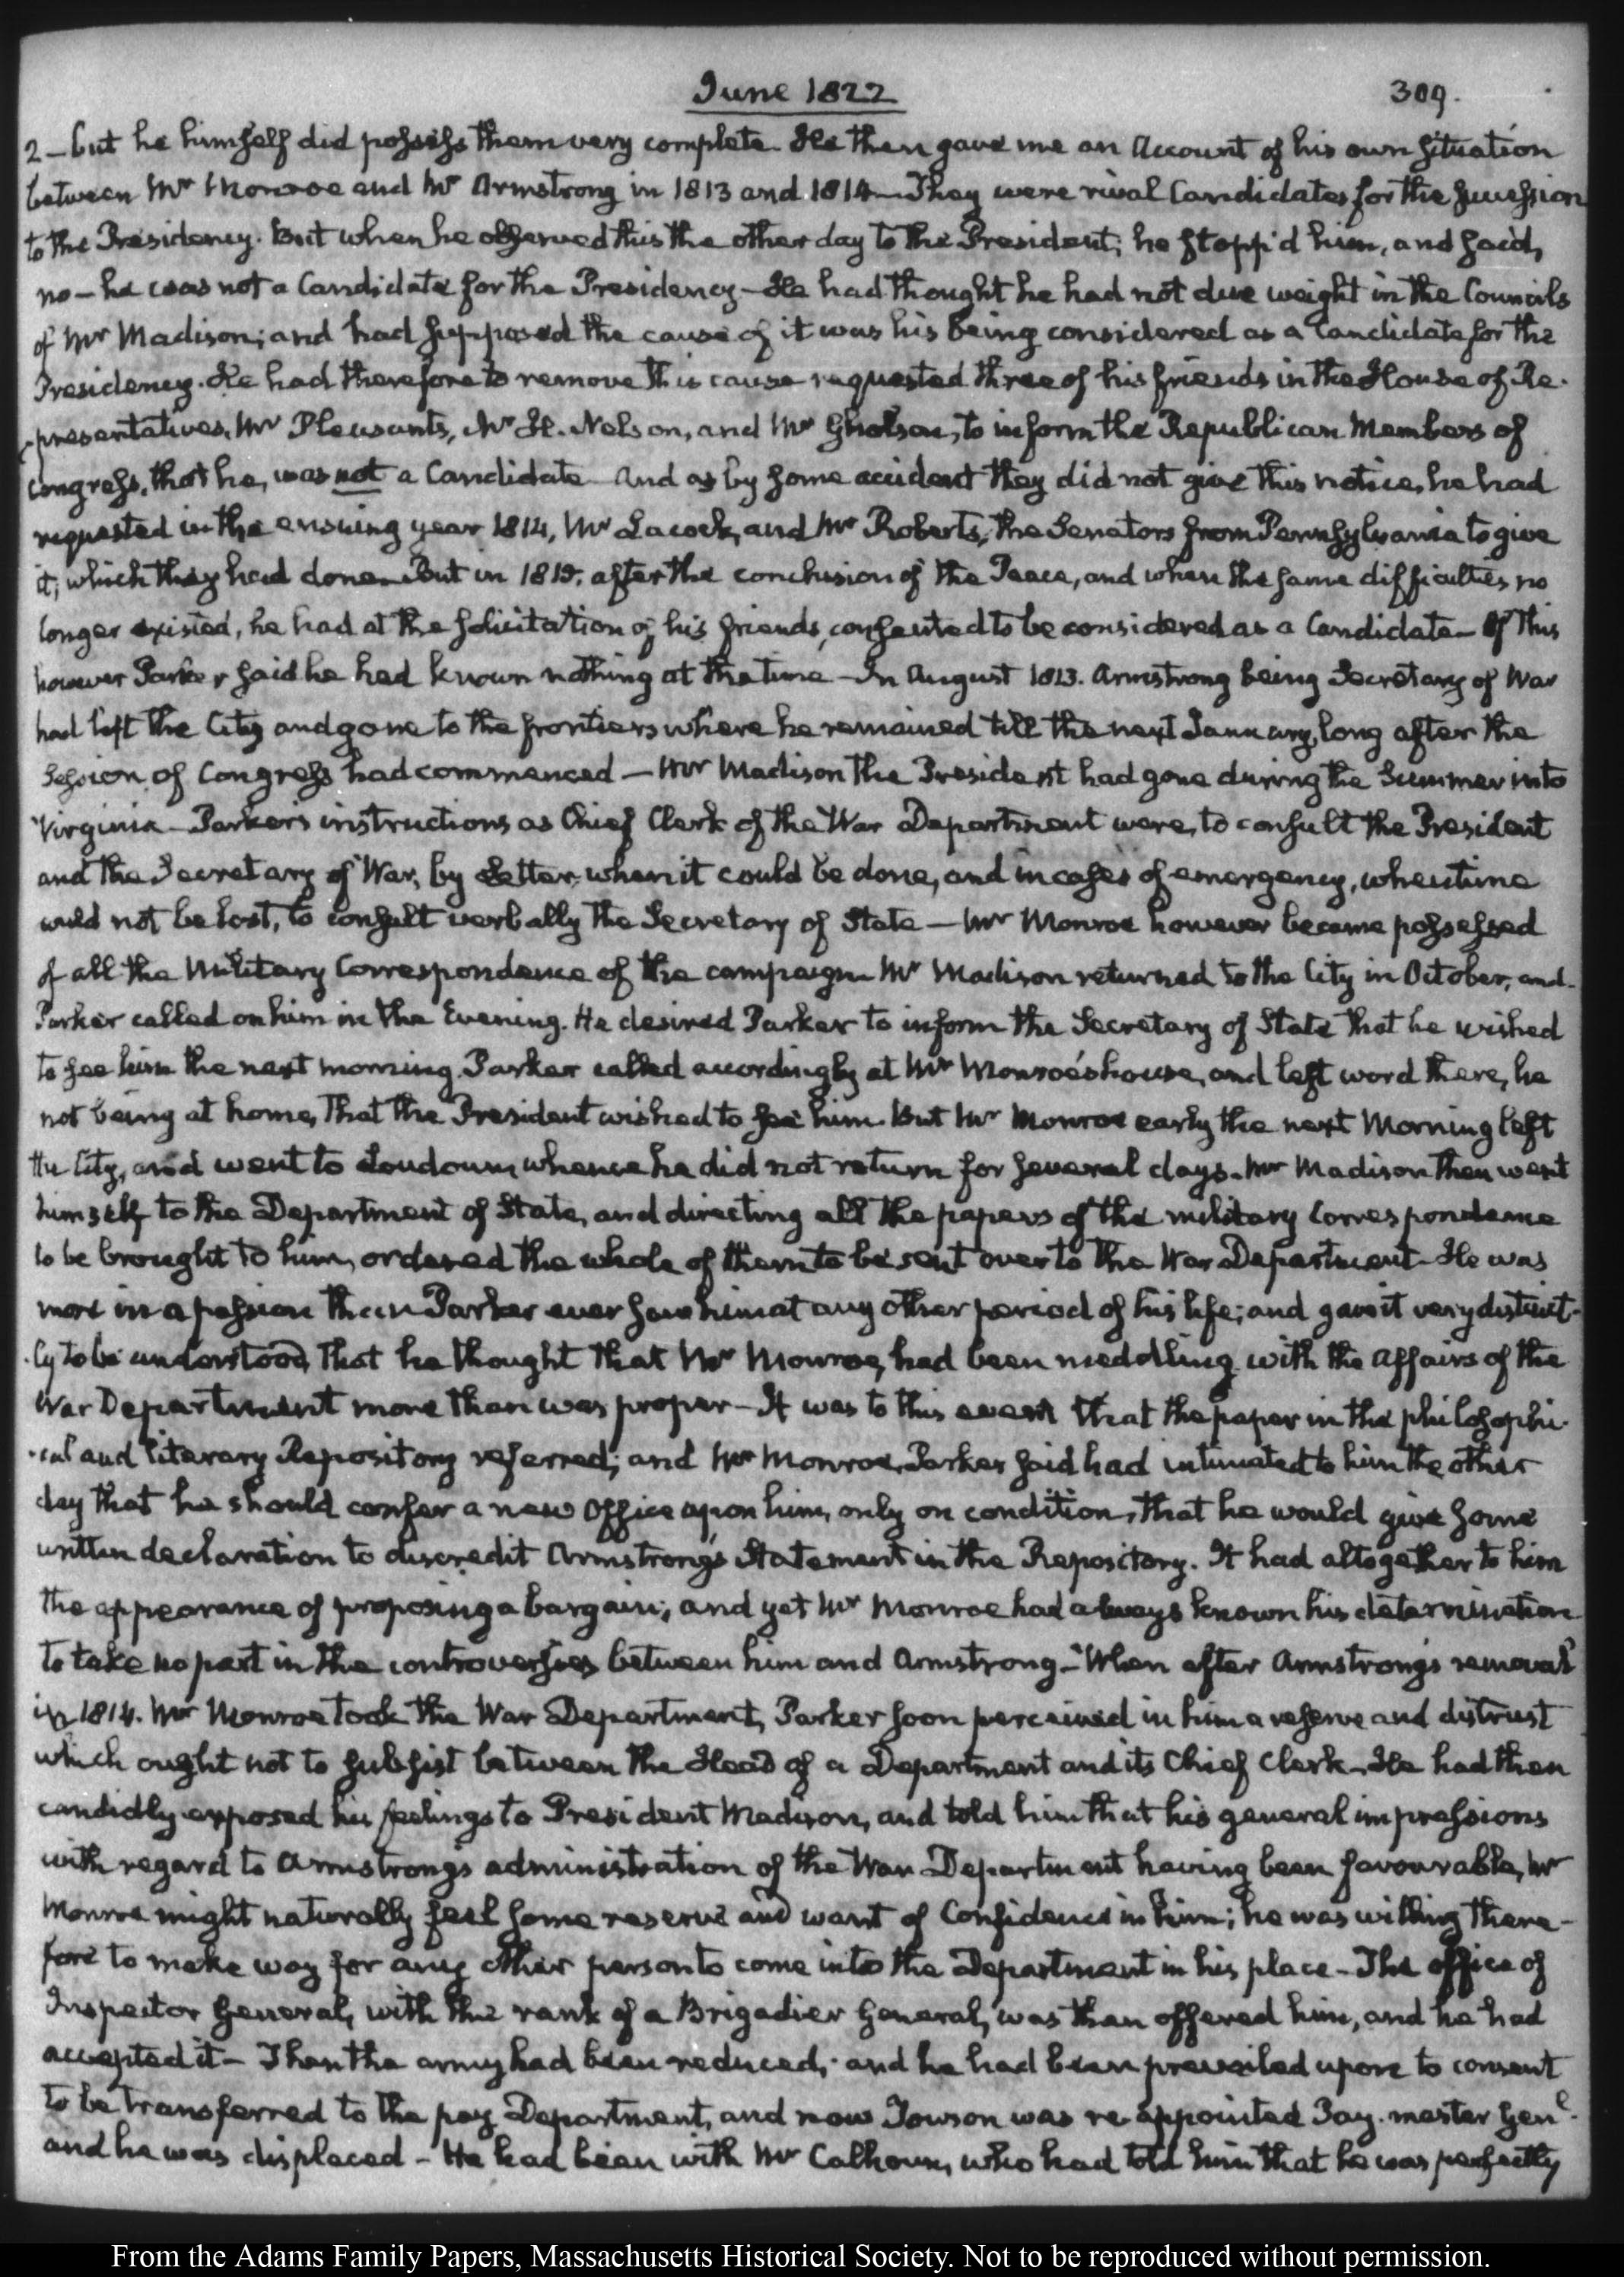 June 1822 309.
2 — but he himself did possess them very complete. He then gave me an Account of his own situation
between Mr Monroe and Mr Armstrong in 1813 and 1814 — They were rival Candidates for the succession
to the Presidency. But when he observed this the other day to the President, he stopp'd him, and said,
no — he was not a Candidate for the Presidency — He had thought he had not due weight in the Councils
of Mr Madison; and had supposed the cause of it was his being considered as a Candidate for the
Presidency. He had therefore to remove this cause requested three of his friends in the House of Re-
-presentatives, Mr Pleasants, Mr H. Nelson, and Mr Gholson, to inform the Republican Members of
Congress, that he, was not a Candidate. And as by some accident they did not give this notice, he had
requested in the ensuing year 1814, Mr Lacock, and Mr Roberts, the Senators from Pennsylvania to give
it; which they had done — But in 1815. after the conclusion of the Peace, and when the same difficulties no
longer existed, he had at the solicitation of his friends, consented to be considered as a Candidate — Of this
however Parker said he had known nothing at the time — In August 1813. Armstrong being Secretary of War
had left the City and gone to the frontiers where he remained till the next January, long after the
Session of Congress had commenced — Mr Madison the President had gone during the Summer into
Virginia — Parker's instructions as Chief Clerk of the War Department were, to consult the President
and the Secretary of War, by Letter, when it could be done, and in cases of emergency, when time
could not be lost, to consult verbally the Secretary of State — Mr Monroe however became possessed
of all the Military Correspondence of the campaign. Mr Madison returned to the City in October, and
Parker called on him in the Evening. He desired Parker to inform the Secretary of State that he wished
to see him the next morning. Parker called accordingly at Mr Monroe's house, and left word there, he
not being at home, that the President wished to see him. But Mr Monroe early the next Morning left
the City, and went to Loudoun, whence he did not return for several days. Mr Madison then went
himself to the Department of State, and directing all the papers of the military Correspondence
to be brought to him, ordered the whole of them to be sent over to the War Department — He was
more in a passion than Parker ever saw him at any other period of his life; and gave it very distinct-
-ly to be understood, that he thought that Mr Monroe, had been meddling with the affairs of the
War Department more than was proper — It was to this event that the paper in the philosophi-
-cal and literary Repository referred; and Mr Monroe, Parker said had intimated to him the other
day that he should confer a new Office upon him, only on condition, that he would give some
written declaration to discredit Armstrong's Statement in the Repository. It had altogether to him
the appearance of proposing a bargain; and yet Mr Monroe had always known his determination
to take no part in the controversies between him and Armstrong — When after Armstrong's removal
in 1814. Mr Monroe took the War Department, Parker soon perceived in him a reserve and distrust
which ought not to subsist between the Head of a Department and its Chief Clerk — He had then
candidly exposed his feelings to President Madison, and told him that his general impressions
with regard to Armstrong's administration of the War Department having been favourable, Mr
Monroe might naturally feel some reserve and want of Confidence in him; he was willing there-
fore to make way for any other person to come into the Department in his place — The office of
Inspector General, with the rank of a Brigadier General, was then offered him, and he had
accepted it — Then the army had been reduced; and he had been prevailed upon to consent
to be transferred to the pay Department, and now Towson was re-appointed Pay-master Genl.
and he was displaced — He had been with Mr Calhoun, who had told him that he was perfectly
From the Adams Family Papers, Massachusetts Historical Society. Not to be reproduced without permission.